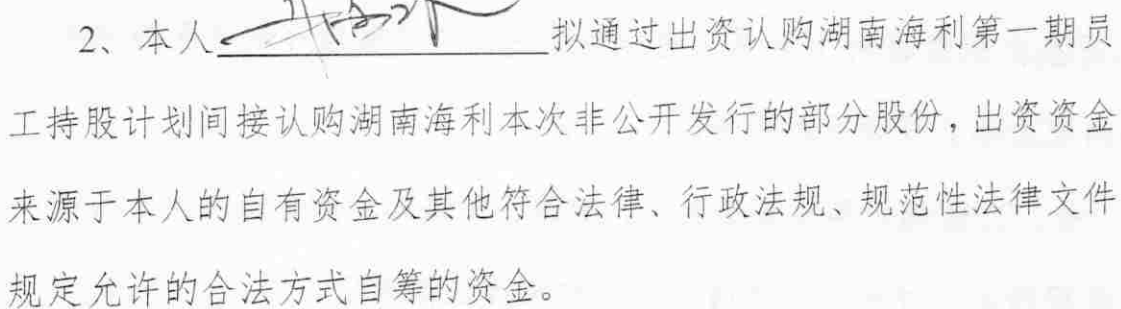 2、本人拟通过出资认购湖南海利第一期员
工持股计划间接认购湖南海利本次非公开发行的部分股份,出资资金
来源于本人的自有资金及其他符合法律、行政法规、规范性法律文件
规定允许的合法方式自筹的资金。